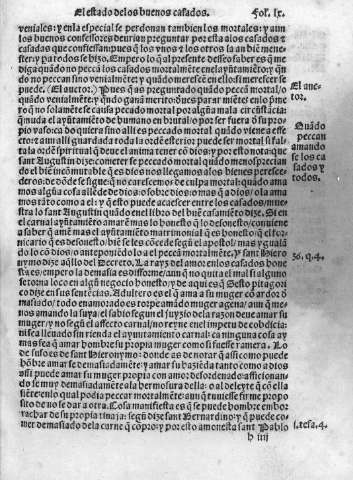 El estado de los buenos casados. Fol. lx.
veniales: y enla especial se perdonan tambien los mortales: y aun
los buenos confessores deurian preguntar por esta alos casados &
casadas que confiessan pues que los vnos & los otros la an biẽ mene-
ster: y pa todos se hizo. Empero lo que al presente desseo saber es que me
diga quãdo no peccã los casados mortalmẽte enel ayũtamiẽto: y quã-
do no peccan sino venialmẽte: y quãdo meresce
deser.) El auctor.) Pues q̃ as preguntado quãdo peccã mortal/o
quãdo venialmẽte: y quãdo ganã merito:
ro q̃ no solamẽte se causa peccado mortal por alguna mala circũstãcia:
q̃nuda el ayuntamiẽto de humano en brutal/o por ser fuera ð su pro
pio vaso: ca do quiera sino alli es peccado mortal
cto: & aun alli guardada toda la ordẽ exterior puede ser mortal si fal-
ta la ordẽ spiritual q̃ deue el anima tener cõ dios: y por esto nota que
sant Augustin dize: cometer se peccado mortal quãdo menosprecian
do el biẽ incõmutable que es dios nos llegamos alos bienes peresce-
deros: de dõde se sigue: q̃ no carescemos de culpa mortal: quãdo ama
mos algũa cosa allẽde de dios: o sobre dios: o mas q̃ a dios/ o la ama
mos tãto como a el: y q̃ esto puede acaescer entre los casados/ mue-
stra lo sant Augustin quãdo enel libro del buẽ casamiẽto dize. Si en
el carnal ayuntamiẽto amare mas lo honesto q̃ lo desonesto/ conuiene
a saber q̃ amẽ mas el ayuntamiẽto matrimonial q̃ es honesto: q̃ el for-
nicario q̃ es desonesto/ biẽ se les cõcede segũ el apostol/ mas y gualã
do lo cõ dios/ o anteponiẽdo lo a el peccã mortalmẽte. Y sant
y mo dize aq̃llo del Decreto. La rayz del amor enlos casados hone
sta es/ empero la demasia es difforme/ aun q̃
se torna loco en algũ negocio honesto: y de aqui es q̃ Sesto pitagori
co dize en sus sentẽcias. Adultero es el q̃ ama a su muger cõ ardor de
masiado/ todo enamorado es torpe amãdo muger agena/ aun q̃ me-
nos amando la suya/ el sabio segun el juyzio dela razon deue amar su
muger/ y no segũ el affecto carnal/ no reyne enel impetu de cobdicia:
ni sea llenado sin rienda el ayuntamiento carnal: ca ninguna cosa ay
mas fea q̃ amar hombre su propia muger como si fuesse ramera. Lo
de suso es de sant Hieronymo: donde as de notar q̃ assi como puede
hõbre amar se demasiadamẽte: y amar su haziẽda tanto como a dios
assi puede amar su muger propia con amor desordenado: afficionan-
do se muy demasiadamẽte a la hermosura della: o al deleyte q̃ cõ ella
siẽte: enlo qual podia peccar mortalmẽte: aun q̃ tuuiesse firme propo
sito de no se dar a otra. Cosa manifiesta es q̃ se puede hombre embo-
rrachar de su propia tinaja: segũ dize sant Bernardino: y q̃ puede co-
mer demasiado dela carne q̃ cõpro: y por esto amonesta sant Pablo
h iiij
El auc-
tor.
Quãdo
peccan
amando
se los ca
sados y
todos.
36. q. 4.
1. tesa. 4.